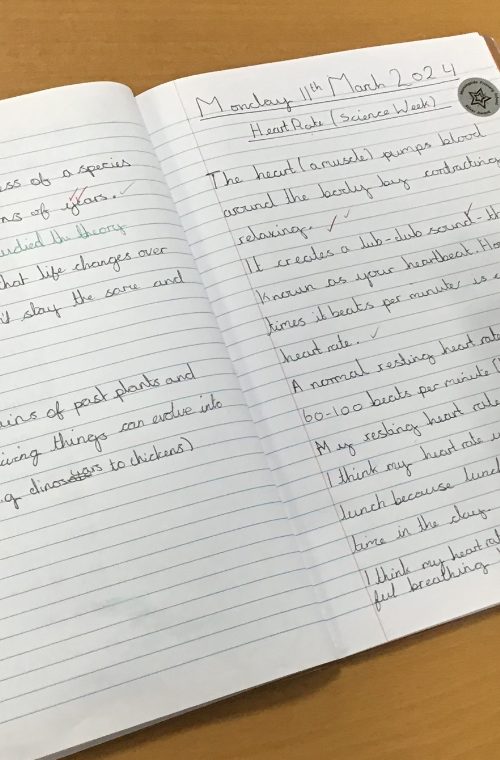 ess of a species
ns of years.
udied the theory
hat life changes over
n't stay the same and
ains of past plants and
iving things can evolve into
.g dinosaurs to chickens)
Monday 11th March 2024
Heart Rate (Science Week)
The heart (a muscle) pumps blood
around the body by contracting
relaxing.
It creates a lub-dub sound - th
known as your heartbeat. Ho
times it beats per minute is
heart rate.
A normal resting heart rate
60-100 beats per minute (
My resting heart rate
I think my heart rate
lunch because lunch
time in the day.
I think my heart rat
ful breathing